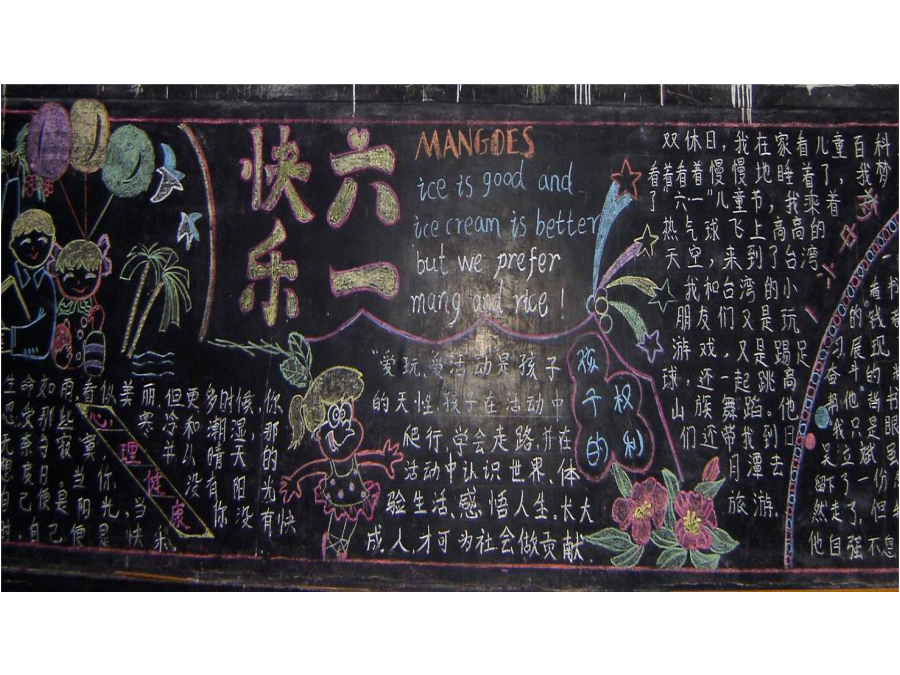 六一
快乐
MANGOES
ice is good and
ice cream is better
but we prefer
mang and rice!
生命如雨,看似美丽,但更多时候,你
寒冷和潮湿,那
寂寞,并从晴天的
度日。当你没有阳光
自己便是阳光,当你没有快
时,自己便是快乐.
心理健康
"爱玩、爱活动是孩子
的天性.孩子在活动中
爬行,学会走路,并在
活动中认识世界、体
验生活、感悟人生.长大
成人,才可为社会做贡献.
孩子的权利
双休日,我在家看儿童百科
看着看着慢慢地睡着了,我梦
了"六一"儿童节,我乘着
热气球飞上高高的
天空,来到了台湾.
我和台湾的小
朋友们又是玩
游戏,又是踢足
球,还一起跳高
山族舞蹈。他
们还带我到日
月潭去
旅游.
留下了一份
然走了,但
他自强不息